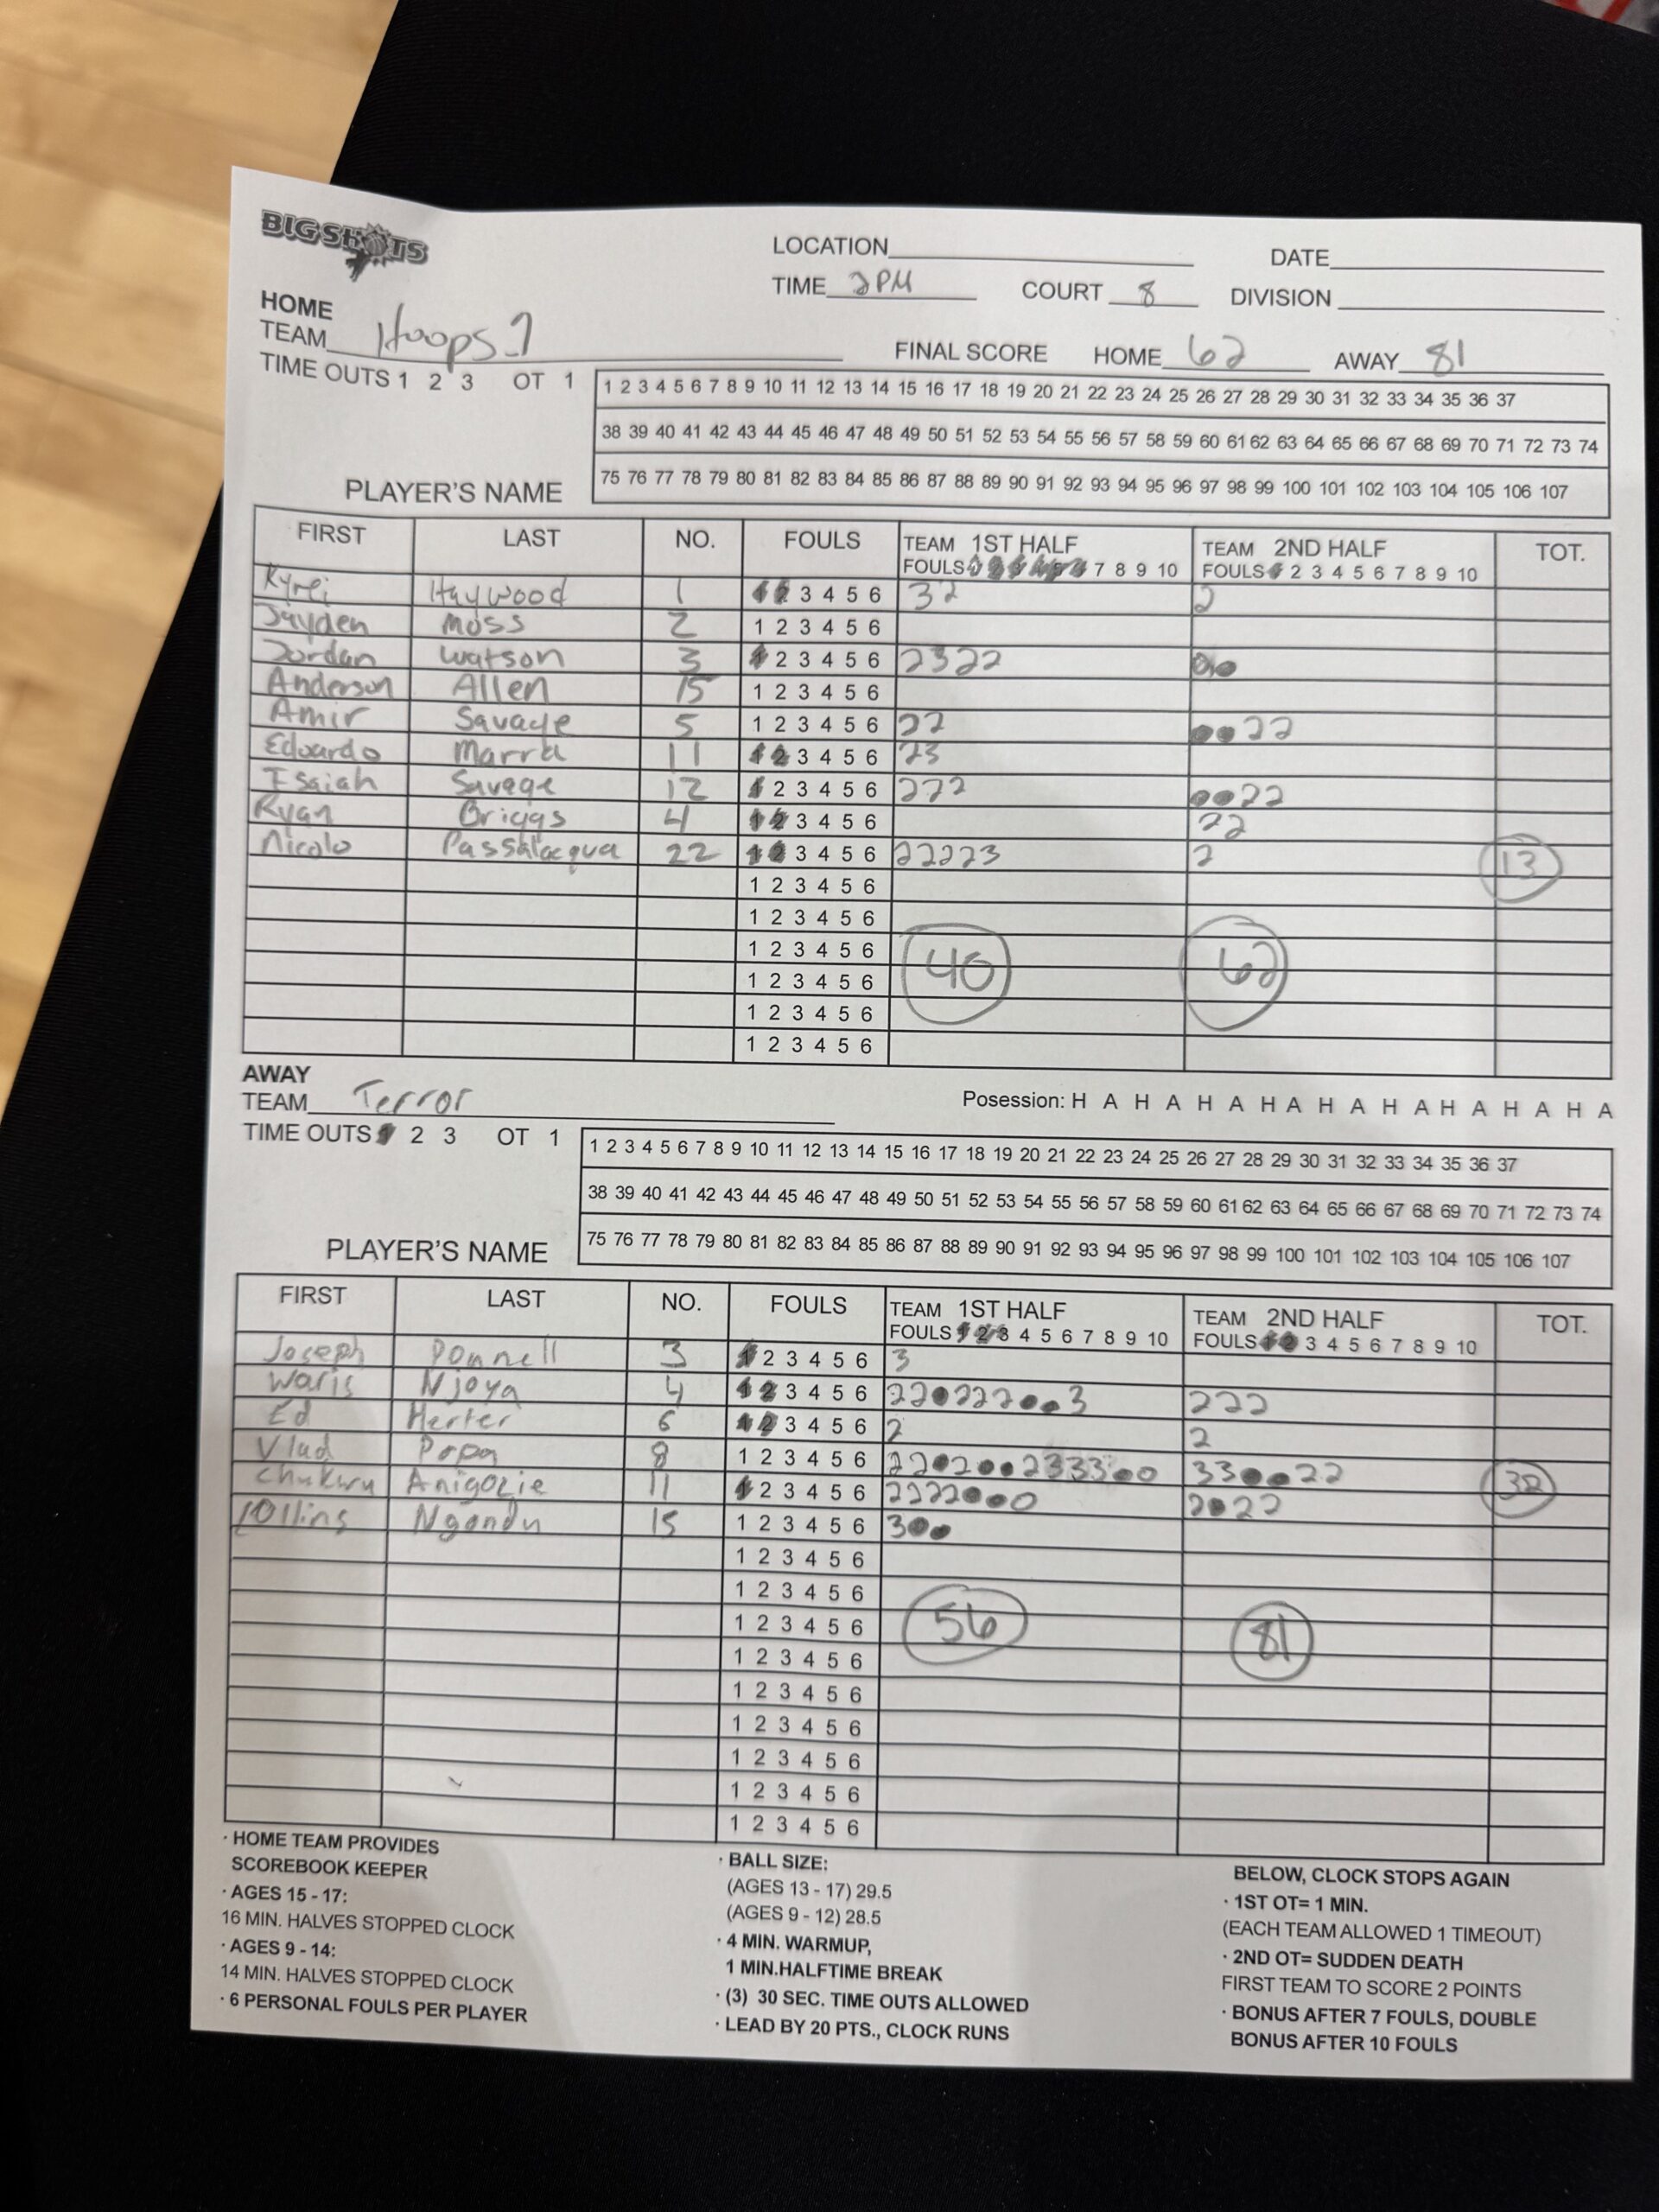 BIGSHOTS
LOCATION DATE
TIME 2PM COURT 8 DIVISION
HOME
TEAM Hoops 7
FINAL SCORE HOME 62 AWAY 81
TIME OUTS 1 2 3 OT 1
1 2 3 4 5 6 7 8 9 10 11 12 13 14 15 16 17 18 19 20 21 22 23 24 25 26 27 28 29 30 31 32 33 34 35 36 37
38 39 40 41 42 43 44 45 46 47 48 49 50 51 52 53 54 55 56 57 58 59 60 61 62 63 64 65 66 67 68 69 70 71 72 73 74
75 76 77 78 79 80 81 82 83 84 85 86 87 88 89 90 91 92 93 94 95 96 97 98 99 100 101 102 103 104 105 106 107
PLAYER'S NAME
FIRST LAST NO. FOULS TEAM 1ST HALF TEAM 2ND HALF TOT.
FOULS 1 2 3 4 5 6 7 8 9 10 FOULS 1 2 3 4 5 6 7 8 9 10
Kyrei Haywood 1 1 2 3 4 5 6 32 2
Jayden Moss 2 1 2 3 4 5 6
Jordan Watson 3 1 2 3 4 5 6 2322
Anderson Allen 15 1 2 3 4 5 6
Amir Savage 5 1 2 3 4 5 6 22 22
Edoardo Marra 11 1 2 3 4 5 6 23
Isaiah Savage 12 1 2 3 4 5 6 222 22
Ryan Briggs 4 1 2 3 4 5 6 22
Nicolo Passalacqua 22 1 2 3 4 5 6 22223 2 13
1 2 3 4 5 6
1 2 3 4 5 6
1 2 3 4 5 6 40 62
1 2 3 4 5 6
1 2 3 4 5 6
1 2 3 4 5 6
AWAY
TEAM Terror
Posession: H A H A H A H A H A H A H A H A H A
TIME OUTS 1 2 3 OT 1
1 2 3 4 5 6 7 8 9 10 11 12 13 14 15 16 17 18 19 20 21 22 23 24 25 26 27 28 29 30 31 32 33 34 35 36 37
38 39 40 41 42 43 44 45 46 47 48 49 50 51 52 53 54 55 56 57 58 59 60 61 62 63 64 65 66 67 68 69 70 71 72 73 74
75 76 77 78 79 80 81 82 83 84 85 86 87 88 89 90 91 92 93 94 95 96 97 98 99 100 101 102 103 104 105 106 107
PLAYER'S NAME
FIRST LAST NO. FOULS TEAM 1ST HALF TEAM 2ND HALF TOT.
FOULS 1 2 3 4 5 6 7 8 9 10 FOULS 1 2 3 4 5 6 7 8 9 10
Joseph Donnell 3 1 2 3 4 5 6 3
Waris Njoya 4 1 2 3 4 5 6 22 222 3 222
Ed Herter 6 1 2 3 4 5 6 2 2
Vlad Popa 8 1 2 3 4 5 6 22 2 23333 0 33 22 32
Chukwu Anigozie 11 1 2 3 4 5 6 2222 0 2 22
Collins Ngandu 15 1 2 3 4 5 6 3
1 2 3 4 5 6
1 2 3 4 5 6
1 2 3 4 5 6 56 81
1 2 3 4 5 6
1 2 3 4 5 6
1 2 3 4 5 6
1 2 3 4 5 6
1 2 3 4 5 6
1 2 3 4 5 6
· HOME TEAM PROVIDES
SCOREBOOK KEEPER
· AGES 15 - 17:
16 MIN. HALVES STOPPED CLOCK
· AGES 9 - 14:
14 MIN. HALVES STOPPED CLOCK
· 6 PERSONAL FOULS PER PLAYER
· BALL SIZE:
(AGES 13 - 17) 29.5
(AGES 9 - 12) 28.5
· 4 MIN. WARMUP,
1 MIN.HALFTIME BREAK
· (3) 30 SEC. TIME OUTS ALLOWED
· LEAD BY 20 PTS., CLOCK RUNS
BELOW, CLOCK STOPS AGAIN
· 1ST OT= 1 MIN.
(EACH TEAM ALLOWED 1 TIMEOUT)
· 2ND OT= SUDDEN DEATH
FIRST TEAM TO SCORE 2 POINTS
· BONUS AFTER 7 FOULS, DOUBLE
BONUS AFTER 10 FOULS